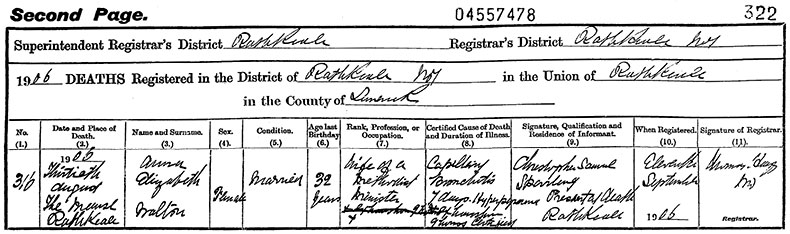 Second Page.
04557478
322
Superintendent Registrar's District Rathkeale
Registrar's District Rathkeale No 1
1906 DEATHS Registered in the District of Rathkeale No 1 in the Union of Rathkeale
in the County of Limerick
No. (1.)
Date and Place of Death. (2.)
Name and Surname. (3.)
Sex. (4.)
Condition. (5.)
Age last Birthday (6.)
Rank, Profession, or Occupation. (7.)
Certified Cause of Death and Duration of Illness. (8.)
Signature, Qualification and Residence of Informant. (9.)
When Registered. (10.)
Signature of Registrar. (11.)
316
1906
Thirtieth
August
The Manse
Rathkeale
Anna
Elizabeth
Walton
Female
Married
32
years
Wife of a
Methodist
Minister
Capillary
Bronchitis
7 days
Certified
Christopher Samuel
Sparling
Present at death
Rathkeale
Eleventh
September
1906
Thomas
Registrar.